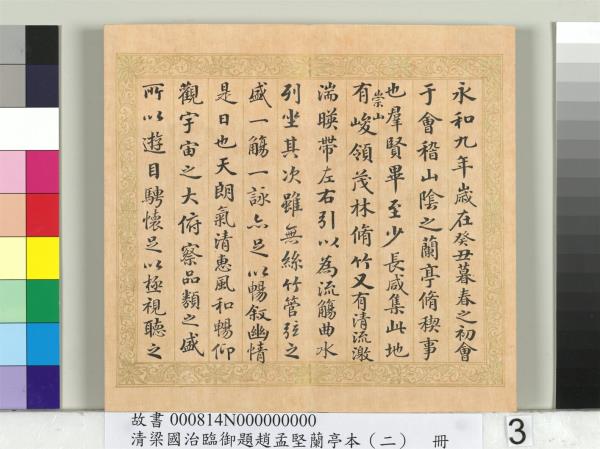 永和九年歲在癸丑暮春之初會
于會稽山陰之蘭亭脩稧事
也羣賢畢至少長咸集此地
有崇山峻領茂林脩竹又有清流激
湍暎帶左右引以為流觴曲水
列坐其次雖無絲竹管弦之
盛一觴一詠亦足以暢敘幽情
是日也天朗氣清惠風和暢仰
觀宇宙之大俯察品類之盛
所以遊目騁懷足以極視聽之
故書 000814N000000000
清梁國治臨御題趙孟堅蘭亭本（二） 冊
3